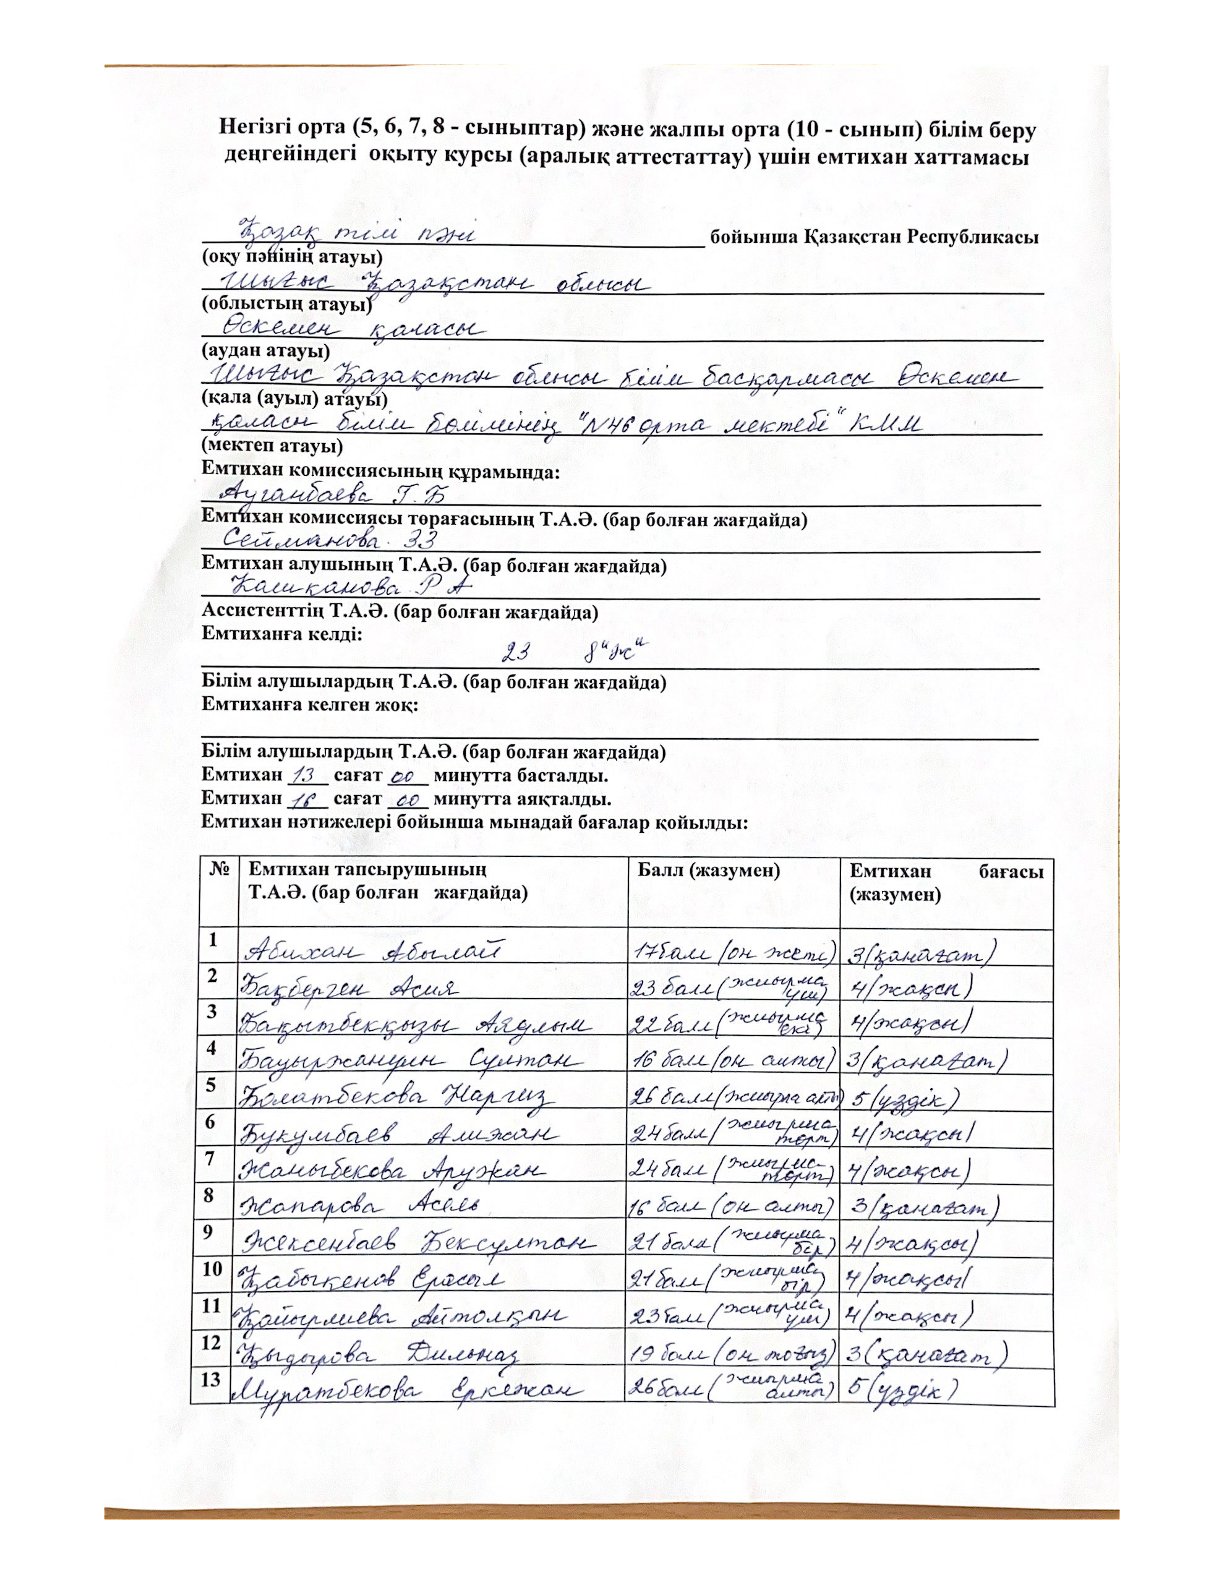 Негізгі орта (5, 6, 7, 8 - сыныптар) және жалпы орта (10 - сынып) білім беру
деңгейіндегі оқыту курсы (аралық аттестаттау) үшін емтихан хаттамасы
Қазақ тілі пәні бойынша Қазақстан Республикасы
(оқу пәнінің атауы)
Шығыс Қазақстан облысы
(облыстың атауы)
Өскемен қаласы
(аудан атауы)
Шығыс Қазақстан облысы білім басқармасы Өскемен
(қала (ауыл) атауы)
қаласы білім бөлімінің "N46 орта мектебі" КММ
(мектеп атауы)
Емтихан комиссиясының құрамында:
Ауганбаева Г.Б
Емтихан комиссиясы төрағасының Т.А.Ә. (бар болған жағдайда)
Сейманова. ЗЗ
Емтихан алушының Т.А.Ә. (бар болған жағдайда)
Кашканова Р А
Ассистенттің Т.А.Ә. (бар болған жағдайда)
Емтиханға келді:
23 8"Ж"
Білім алушылардың Т.А.Ә. (бар болған жағдайда)
Емтиханға келген жоқ:
Білім алушылардың Т.А.Ә. (бар болған жағдайда)
Емтихан 13 сағат 00 минутта басталды.
Емтихан 16 сағат 00 минутта аяқталды.
Емтихан нәтижелері бойынша мынадай бағалар қойылды:
№ Емтихан тапсырушының Т.А.Ә. (бар болған жағдайда) Балл (жазумен) Емтихан бағасы (жазумен)
1 Абихан Абылай 17 балл (он жеті) 3 (қанағат)
2 Бақберген Асия 23 балл (жиырма үш) 4 (жақсы)
3 Бақытбекқызы Аяулым 22 балл (жиырма екі) 4 (жақсы)
4 Бауыржанұлы Султан 16 балл (он алты) 3 (қанағат)
5 Болатбекова Наргиз 26 балл (жиырма алты) 5 (үздік)
6 Букумбаев Алижан 24 балл (жиырма төрт) 4 (жақсы)
7 Жаныбекова Аружан 24 балл (жиырма төрт) 4 (жақсы)
8 Жапарова Асель 16 балл (он алты) 3 (қанағат)
9 Жексенбаев Бексултан 21 балл (жиырма бір) 4 (жақсы)
10 Қабыкенов Ерасыл 21 балл (жиырма бір) 4 (жақсы)
11 Қайырлиева Айтолқын 23 балл (жиырма үш) 4 (жақсы)
12 Қыдырова Дильназ 19 балл (он тоғыз) 3 (қанағат)
13 Муратбекова Еркежан 26 балл (жиырма алты) 5 (үздік)